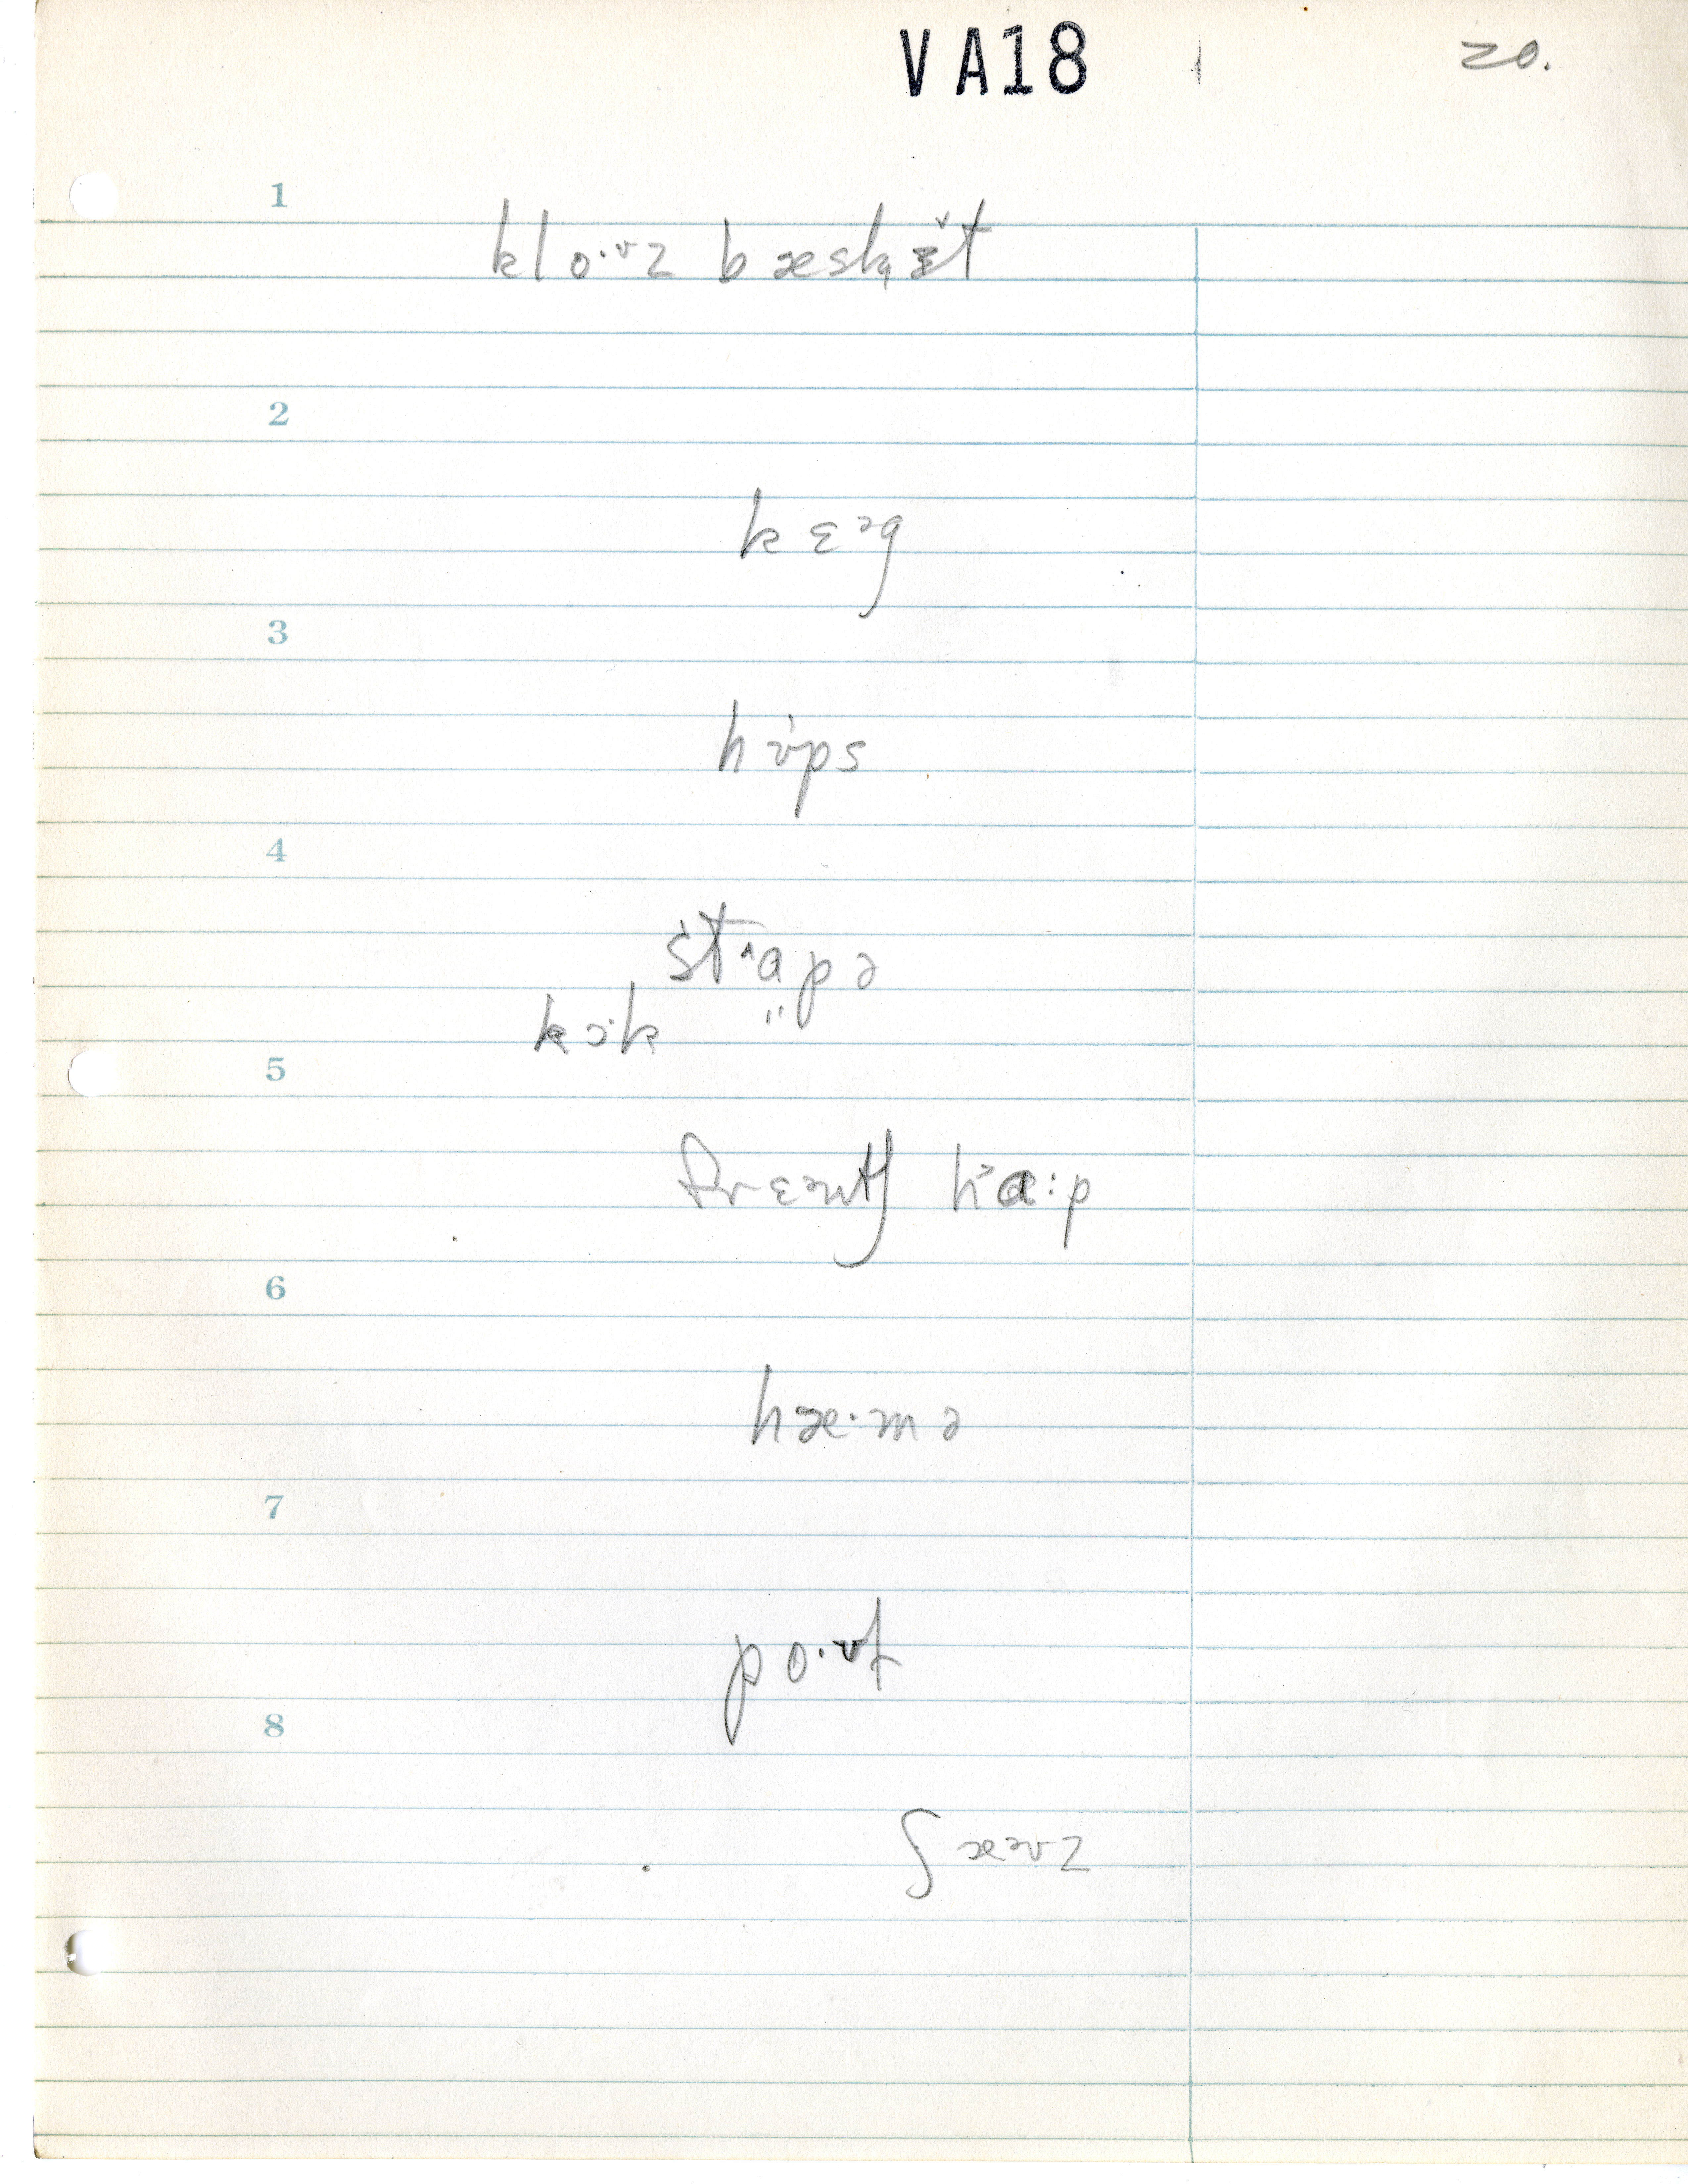 VA18 20.
1
klo·ᶷz bæskɪ̆t
2
kɛᵊg
3
hʊ̇ps
4
stˆɑpə
kɔ·k "
5
frɛᵊntʃ h˃ɑ:p
6
hæ·mə
7
po·ᶷɫ
8
ʃæᵊvz